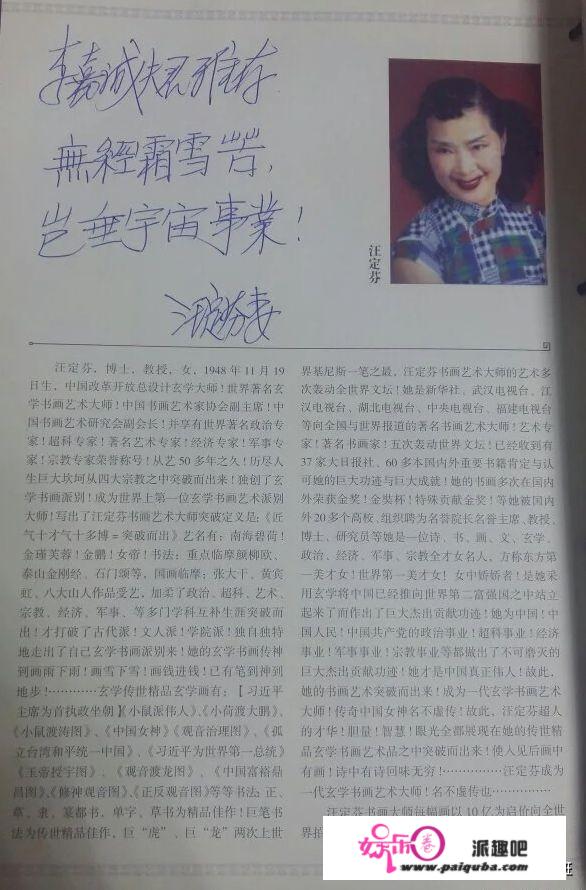 李嘉诚夫君雅存
無經霜雪苦，
岂垂宇宙事業！
汪定芬妻
汪定芬
汪定芬，博士，教授，女，1948年11月19
日生，中国改革开放总设计玄学大师！世界著名玄
学书画艺术大师！中国书画艺术家协会副主席！中
国书画艺术研究会副会长！并享有世界著名政治专
家！超科专家！著名艺术专家！经济专家！军事专
家！宗教专家荣誉称号！从艺50多年之久！历尽人
生巨大坎坷从四大宗教之中突破而出来！独创了玄
学书画派别！成为世界上第一位玄学书画艺术派别
大师！写出了汪定芬书画艺术大师突破定义是：《匠
气十才气十多博＝突破而出》艺名有：南海碧荷！
金瑾芙蓉！金鹏！女帝！书法：重点临摩颜柳欧、
泰山金刚经、石门颂等，国画临摩：张大干、黄宾
虹、八大山人作品受艺，加柔了政治、超科、艺术、
宗教、经济、军事、等多门学科互补生涯突破而
出！才打破了古代派！文人派！学院派！独自独特
地走出了自己玄学书画派别来！她的玄学书画传神
到画雨下雨！画雪下雪！画钱进钱！已有笔到神到
地步！…………玄学传世精品玄学画有；【习近平
主席为首执政坐朝】《小鼠派伟人》、《小荷渡大鹏》、
《小鼠渡涛图》、《中国女神》《观音治理图》、《孤
立台湾和平统一中国》、《习近平为世界第一总统》
《玉帝授宇图》、《观音渡龙图》、《中国富裕鼎
昌图》、《修神观音图》、《正反观音图》等等书法：正、
草、隶、篆都书，单字，草书为精品佳作！巨笔书
法为传世精品佳作，巨“虎”、巨“龙”两次上世
界基尼斯一笔之最，汪定芬书画艺术大师的艺术多
次轰动全世界文坛！她是新华社、武汉电视台、江
汉电视台、湖北电视台、中央电视台、福建电视台
等向全国与世界报道的著名书画艺术大师！艺术专
家！著名书画家！五次轰动世界文坛！已经收到有
37家大日报社、60多本国内外重要书籍肯定与认
可她的巨大功迹与巨大成就！她的书画多次在国内
外荣获金奖！金奖杯！特殊贡献金奖！等她被国内
外20多个高校、组织聘为名誉院长名誉主席、教授、
博士、研究员等她是一位诗、书、画、文、玄学、
政治、经济、军事、宗教全才女名人，方称东方第
一美才女！世界第一美才女！女中娇娇者！是她采
用玄学将中国已经推向世界第二富强国之中站立
起来了而作出了巨大杰出贡献功迹！她为中国！中
国人民！中国共产党的政治事业！超科事业！经济
事业！军事事业！宗教事业等都做出了不可磨灭的
巨大杰出贡献功迹！她才是中国真正伟人！故此，
她的书画艺术突破而出来！成为一代玄学书画艺术
大师！传奇中国女神名不虚传！故此，汪定芬超人
的才华！胆量！智慧！眼光全都展现在她的传世精
品玄学书画艺术品之中突破而出来！使人见后画中
有画！诗中有诗回味无穷！……………汪定芬成为
一代玄学书画艺术大师！名不虚传也…………
汪定芬书画大师每幅画以10亿为启价向全世
娱乐卷 派趣吧
www.paiquba.com